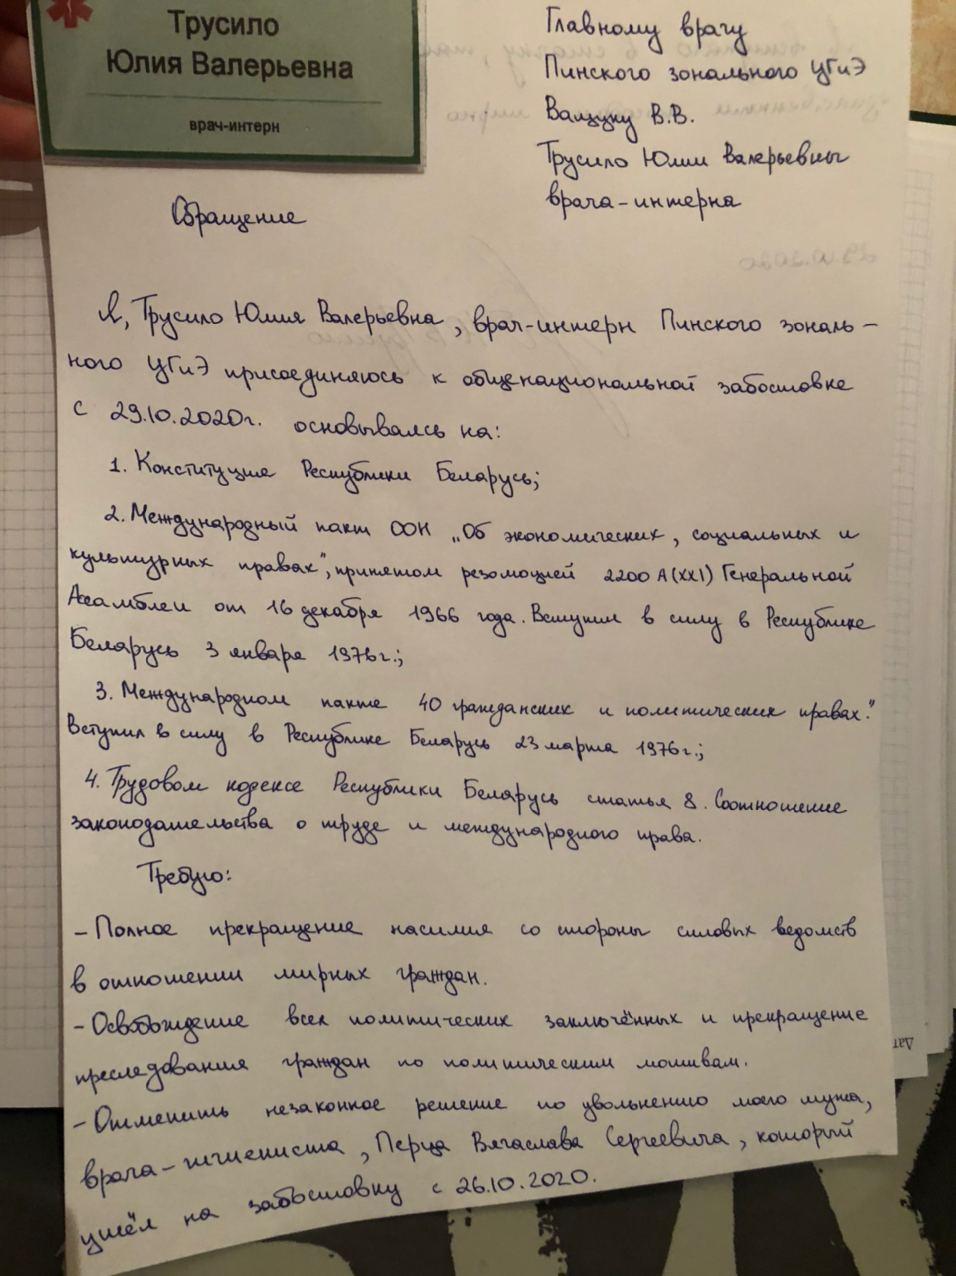 Трусило
Юлия Валерьевна
врач-интерн
Главному врачу
Пинского зонального ЦГиЭ
Ващуку В.В.
Трусило Юлии Валерьевны
врача-интерна
Обращение
Я, Трусило Юлия Валерьевна, врач-интерн Пинского зональ-
ного ЦГиЭ присоединяюсь к общенациональной забостовке
с 29.10.2020г. основываясь на:
1. Конституции Республики Беларусь;
2. Международный пакт ООН „Об экономических, социальных и
культурных правах", принятом резолюцией 2200 А(XXI) Генеральной
Ассамблеи от 16 декабря 1966 года. Вступил в силу в Республике
Беларусь 3 января 1976г.;
3. Международном пакте 40 гражданских и политических правах."
Вступил в силу в Республике Беларусь 23 марта 1976г.;
4. Трудовом кодексе Республики Беларусь статья 8. Соотношение
законодательства о труде и международного права.
Требую:
- Полное прекращение насилия со стороны силовых ведомств
в отношении мирных граждан.
- Освобождение всех политических заключённых и прекращение
преследования граждан по политическим мотивам.
- Отменить незаконное решение по увольнению моего мужа,
врача-гигиениста, Перца Вячаслава Сергеевича, который
ушёл на забостовку с 26.10.2020.
29.10.2020
Дат